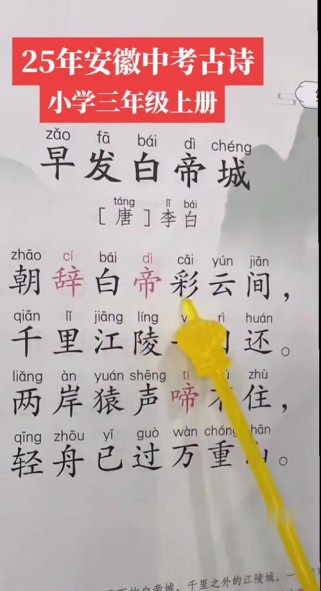 25年安徽中考古诗
小学三年级上册
zǎo fā bái dì chéng
早发白帝城
táng lǐ bái
[唐]李白
zhāo cí bái dì cǎi yún jiān
朝辞白帝彩云间，
qiān lǐ jiāng líng rì huán
千里江陵 还。
liǎng àn yuán shēng tí zhù
两岸猿声啼不住，
qīng zhōu yǐ guò wàn chóng shān
轻舟已过万重山。
白帝城，千里之外的江陵城，一